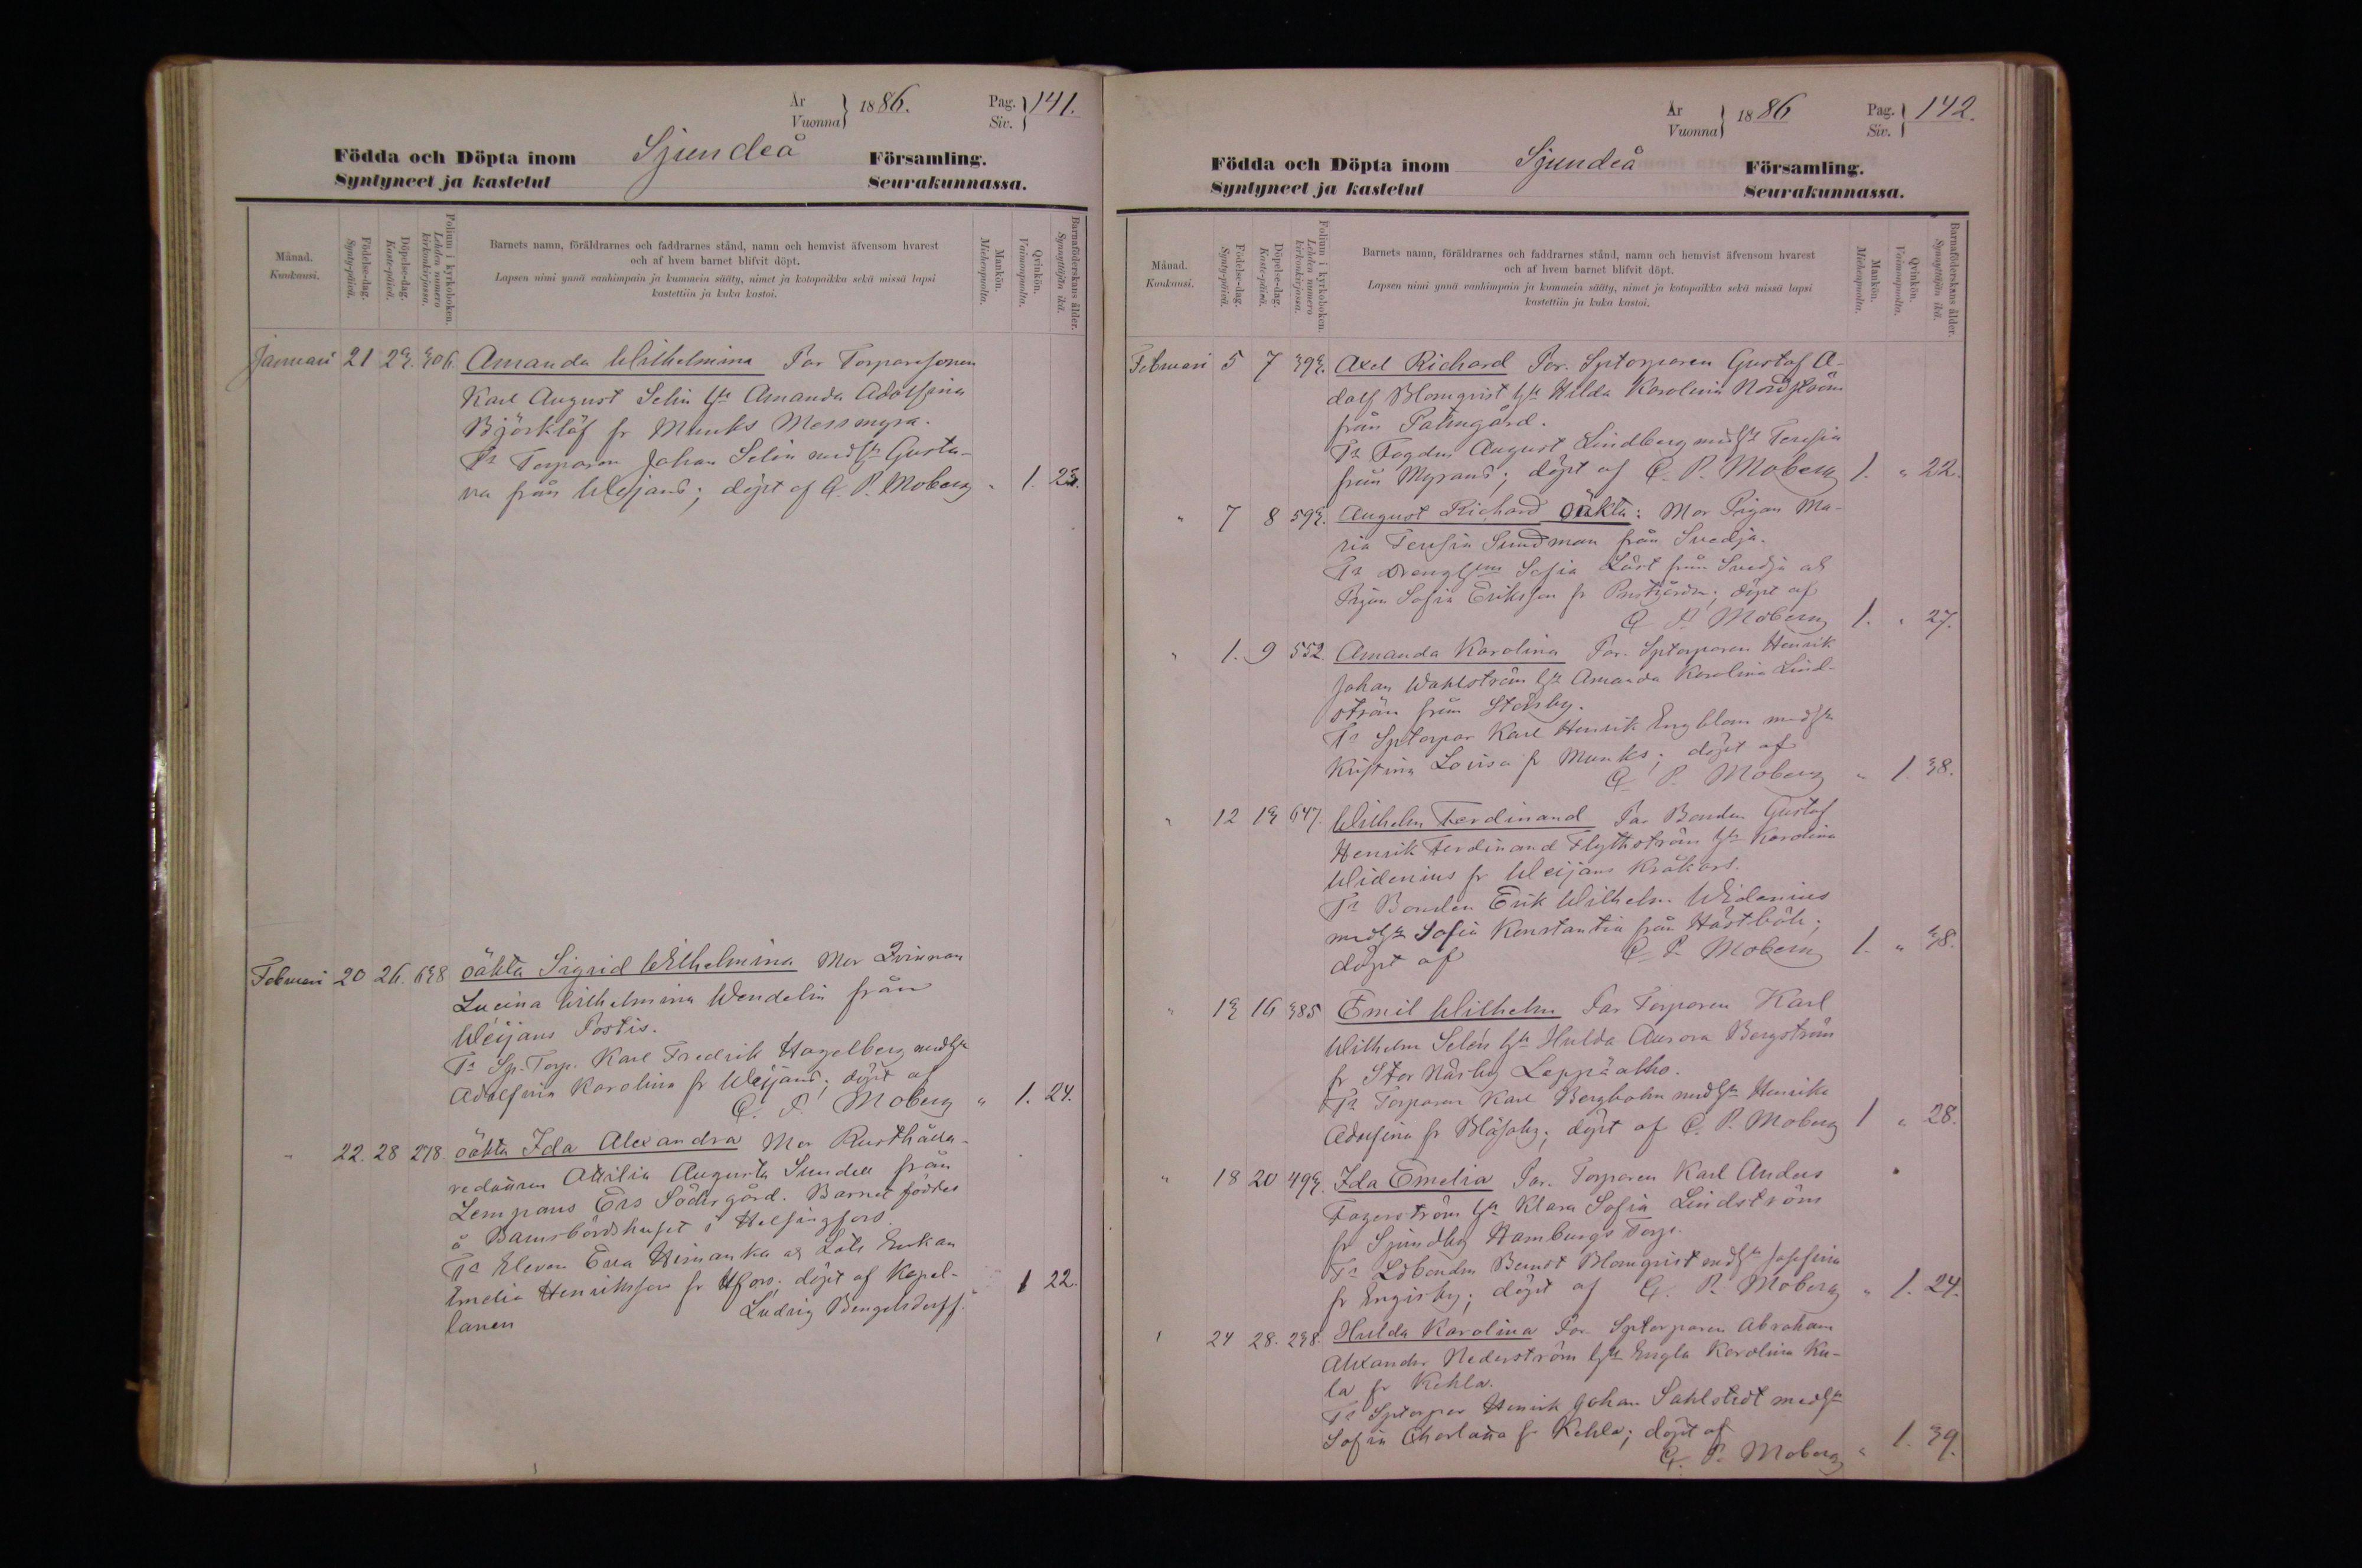 År
Vuonna } 1886.
Pag.
Siv. } 141.
Födda och Döpta inom Sjundeå Församling.
Syntyneet ja kastetut Seurakunnassa.
Månad.
Kuukausi.
Födelse-dag.
Synty-päivä.
Döpelse-dag.
Kaste-päivä.
Folium i kyrkoboken.
Lehden numero
kirkonkirjassa.
Barnets namn, föräldrarnes och faddrarnes stånd, namn och hemvist äfvensom hvarest
och af hvem barnet blifvit döpt.
Lapsen nimi ynnä vanhimpain ja kummein sääty, nimet ja kotopaikka sekä missä lapsi
kastettiin ja kuka kastoi.
Mankön.
Miehenpuolta.
Qvinkön.
Vaimonpuolta.
Barnaföderskans ålder.
Synnyttäjän ikä.
Januari 21 23. 306 Amanda Wilhelmina För Torparesonen
Karl August Selin hu Amanda Adolfina
Björklöf fr Munks Mossmyra.
Tr Torparen Johan Selin med hu Gusta-
va från Weijans; döpt af C. P. Moberg " 1. 23.
Februari 20 26. 638 oäkta Sigrid Wilhelmina Mor Qvinnan
Lucina Wilhelmina Wendelin från
Weijans Postis.
Tr Sp. Torp. Karl Fredrik Hagelberg med hu
Adolfina Karolina fr Weijans; döpt af
C. P. Moberg " 1. 24.
" 22. 28 278. oäkta Ida Alexandra Mor Rusthålla-
redottren Otilia Augusta Sundell från
Lempans Ers Södergård. Barnet föddes
å Barnsbördshuset i Helsingfors.
Tr Eleven Eva Himanka o Löts Enkan
Emelia Henriksson fr Hfors; döpt af Kapel-
lanen Ludvig Bengelsdorff. " 1 22.
År
Vuonna } 1886
Pag.
Siv. } 142.
Födda och Döpta inom Sjundeå Församling.
Syntyneet ja kastetut Seurakunnassa.
Månad.
Kuukausi.
Födelse-dag.
Synty-päivä.
Döpelse-dag.
Kaste-päivä.
Folium i kyrkoboken.
Lehden numero
kirkonkirjassa.
Barnets namn, föräldrarnes och faddrarnes stånd, namn och hemvist äfvensom hvarest
och af hvem barnet blifvit döpt.
Lapsen nimi ynnä vanhimpain ja kummein sääty, nimet ja kotopaikka sekä missä lapsi
kastettiin ja kuka kastoi.
Mankön.
Miehenpuolta.
Qvinkön.
Vaimonpuolta.
Barnaföderskans ålder.
Synnyttäjän ikä.
Februari 5 7 393. Axel Richard För. Sptorparen Gustaf A-
dolf Blomqvist hu Hilda Karolina Nordström
från Palmgård.
Tr Fogden August Lindberg med hu Teresia
från Myrans; döpt af C. P. Moberg 1. " 22.
" 7 8 593. August Richard oäkta: Mor Pigan Ma-
ria Teresia Sundman från Svedja.
Tr Sofia Löst från Svedja och
Pigan Sofia Eriksson fr Prestgården; döpt af
C. P. Moberg 1. " 27.
" 1. 9 552. Amanda Karolina För. Sptorparen Henrik
Johan Wahlström hu Amanda Karolina Lind-
ström från Störsby.
Tr Sptorpar Karl Henrik Engblom med hu
Kristina Lovisa fr Munks; döpt af
C. P. Moberg " 1. 38.
" 12 13 647. Wilhelm Ferdinand För Bonden Gustaf
Henrik Ferdinand Flythström hu Karolina
Widenius fr Weijans Kråkars.
Tr Bonden Erik Wilhelm Widenius
med hu Sofia Konstantia från Hästböle;
döpt af C. P. Moberg 1. " 38.
" 13 16 385 Emil Wilhelm För Torparen Karl
Wilhelm Selén hu Hulda Aurora Bergström
fr Stor Närby Leppäalho.
Tr Torparen Karl Bergbohm med hu Henrika
Adolfina fr Blåsaby; döpt af C. P. Moberg 1 " 28.
" 18 20 493. Ida Emelia För. Torparen Karl Anders
Fagerström hu Klara Sofia Lindström
fr Sjundby Hamburgs Torp.
Tr Löbonden Berndt Blomqvist med hu Josefina
fr Engisby; döpt af C. P. Moberg " 1. 24.
" 24 28. 238. Hulda Karolina För. Sptorparen Abraham
Alexander Nederström hu Engla Karolina Ku-
la fr Kehla.
Tr Sptorpar Henrik Johan Sahlstedt med hu
Sofia Charlotta fr Kehla; döpt af
C. P. Moberg " 1. 39.